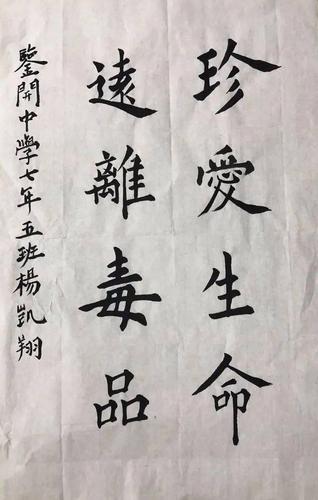 珍愛生命
遠離毒品
鑒開中學七年五班楊凱翔